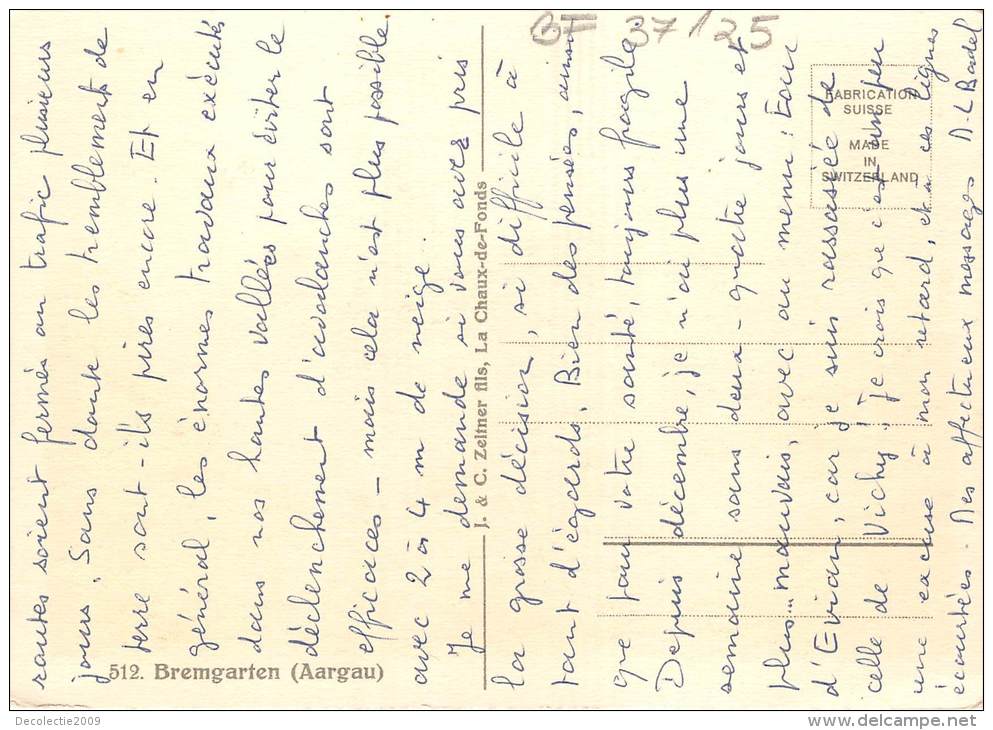 routes soient fermés au trafic plusieurs
jours. Sans doute les tremblements de
terre sont-ils pires encore. Et en
général, les énormes travaux exécutés
dans nos hautes vallées pour éviter le
déclenchement d'avalanches sont
efficaces – mais cela n'est plus possible
avec 2 à 4 m de neige.
Je me demande si vous avez pris
la grosse décision, si difficile à
tant d'égards. Bien des pensées, ainsi
que pour votre santé, toujours fragile.
Depuis décembre, je n'ai plus une
semaine sans deux-quatre jours et
plus... mauvais, avec au menu: Eau
d'Evian, car je suis rassasiée de
celle de Vichy; je crois que c'est un peu
une excuse à mon retard, et à ces lignes
écourtées. Mes affectueux messages A-L Badel
512. Bremgarten (Aargau)
J. & C. Zeltner fils, La Chaux-de-Fonds
BF 37125
FABRICATION
SUISSE
MADE
IN
SWITZERLAND
Decolectie2009
www.delcampe.net